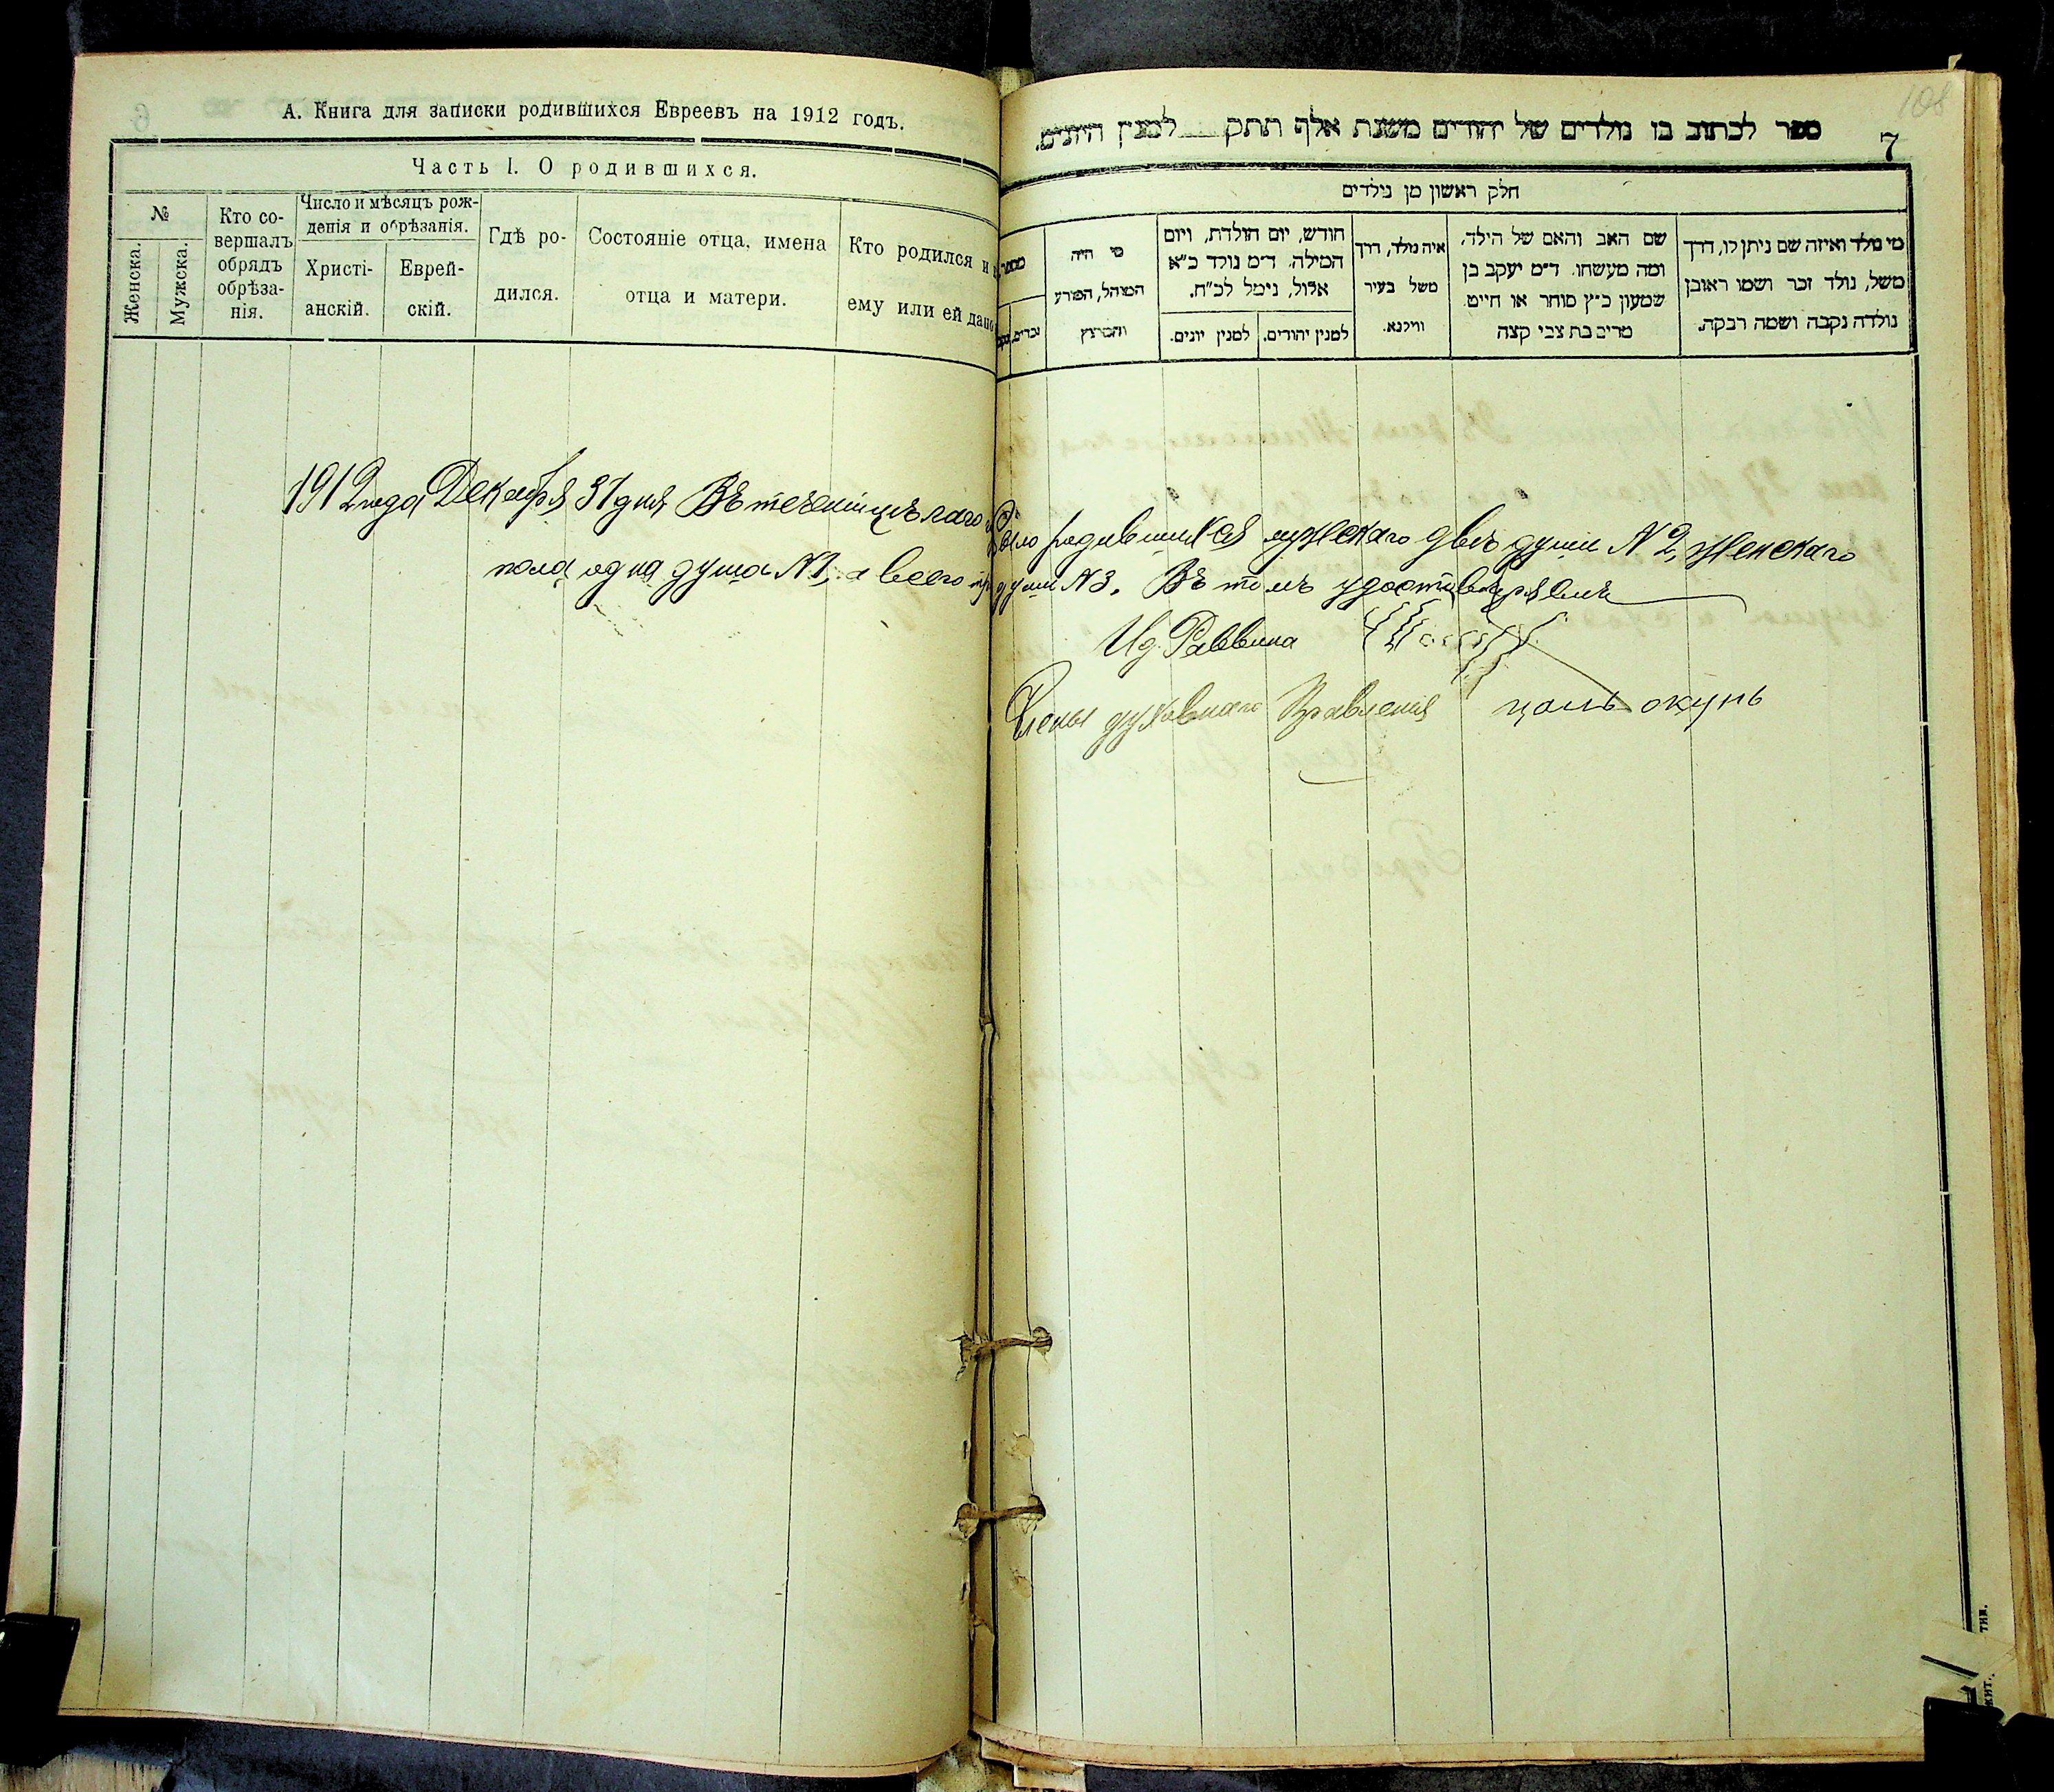 А. Книга для записки родившихся Евреевъ на 1912 годъ.
Часть I. О родившихся.
№
Женска.
Мужска.
Кто со-
вершалъ
обрядъ
обрѣза-
нія.
Число и мѣсяцъ рож-
денія и обрѣзанія.
Христі-
анскій.
Еврей-
скій.
Гдѣ ро-
дился.
Состояніе отца, имена
отца и матери.
Кто родился и
ему или ей дано
108
7
ספר לכתוב בו נולדים של יהודים משנת אלף תתק למנין היונים.
חלק ראשון מן נילדים
מי נולד ואיזה שם ניתן לו, דרך
משל, נולד זכר ושמו ראובן
נולדה נקבה ושמה רבקה.
שם האב והאם של הילד,
ומה מעשהו. ד״מ יעקב בן
שמעון כ״ץ סוחר או חייט
מרים בת צבי קצה
איה נולד, דרך
משל בעיר
ווילנא.
חודש, יום הולדת, ויום
המילה. ד״מ נולד כ״א
אלול, נימל לכ״ח.
למנין יהודים.
למנין יונים.
מי היה
המוהל, הפורע
והמוצץ
מספר
זכרים.
1912 года Декабря 31 дня Въ теченіи цѣлаго было родившихся мужскаго двѣ души № 2, женскаго
пола одна душа № 1, а всего три души № 3. Въ томъ удостовѣряемъ
Ид. Раввина
Члены духовнаго Правленія цаль окунь